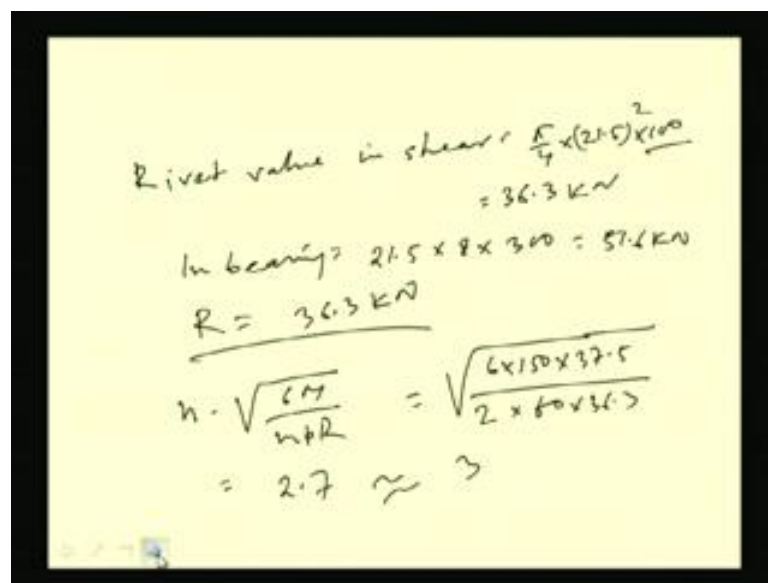 Rivet value in shear = π/4 × (21.5)² × 100
= 36.3 KN
In bearing = 21.5 × 8 × 300 = 51.6 KN
R = 36.3 KN
n = √(6M / mpR) = √(6×150×37.5 / 2 × 80×36.3)
= 2.7 ≈ 3